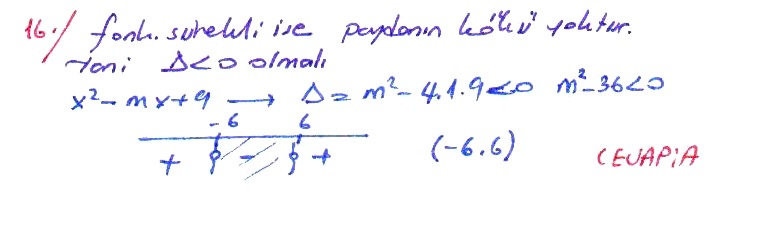 16./ fonk. sürekli ise paydanın kökü yoktur.
Yani Δ<0 olmalı
x²-mx+9 → Δ = m²-4.1.9<0 m²-36<0
-6 6
+ - + (-6.6)
CEVAP:A